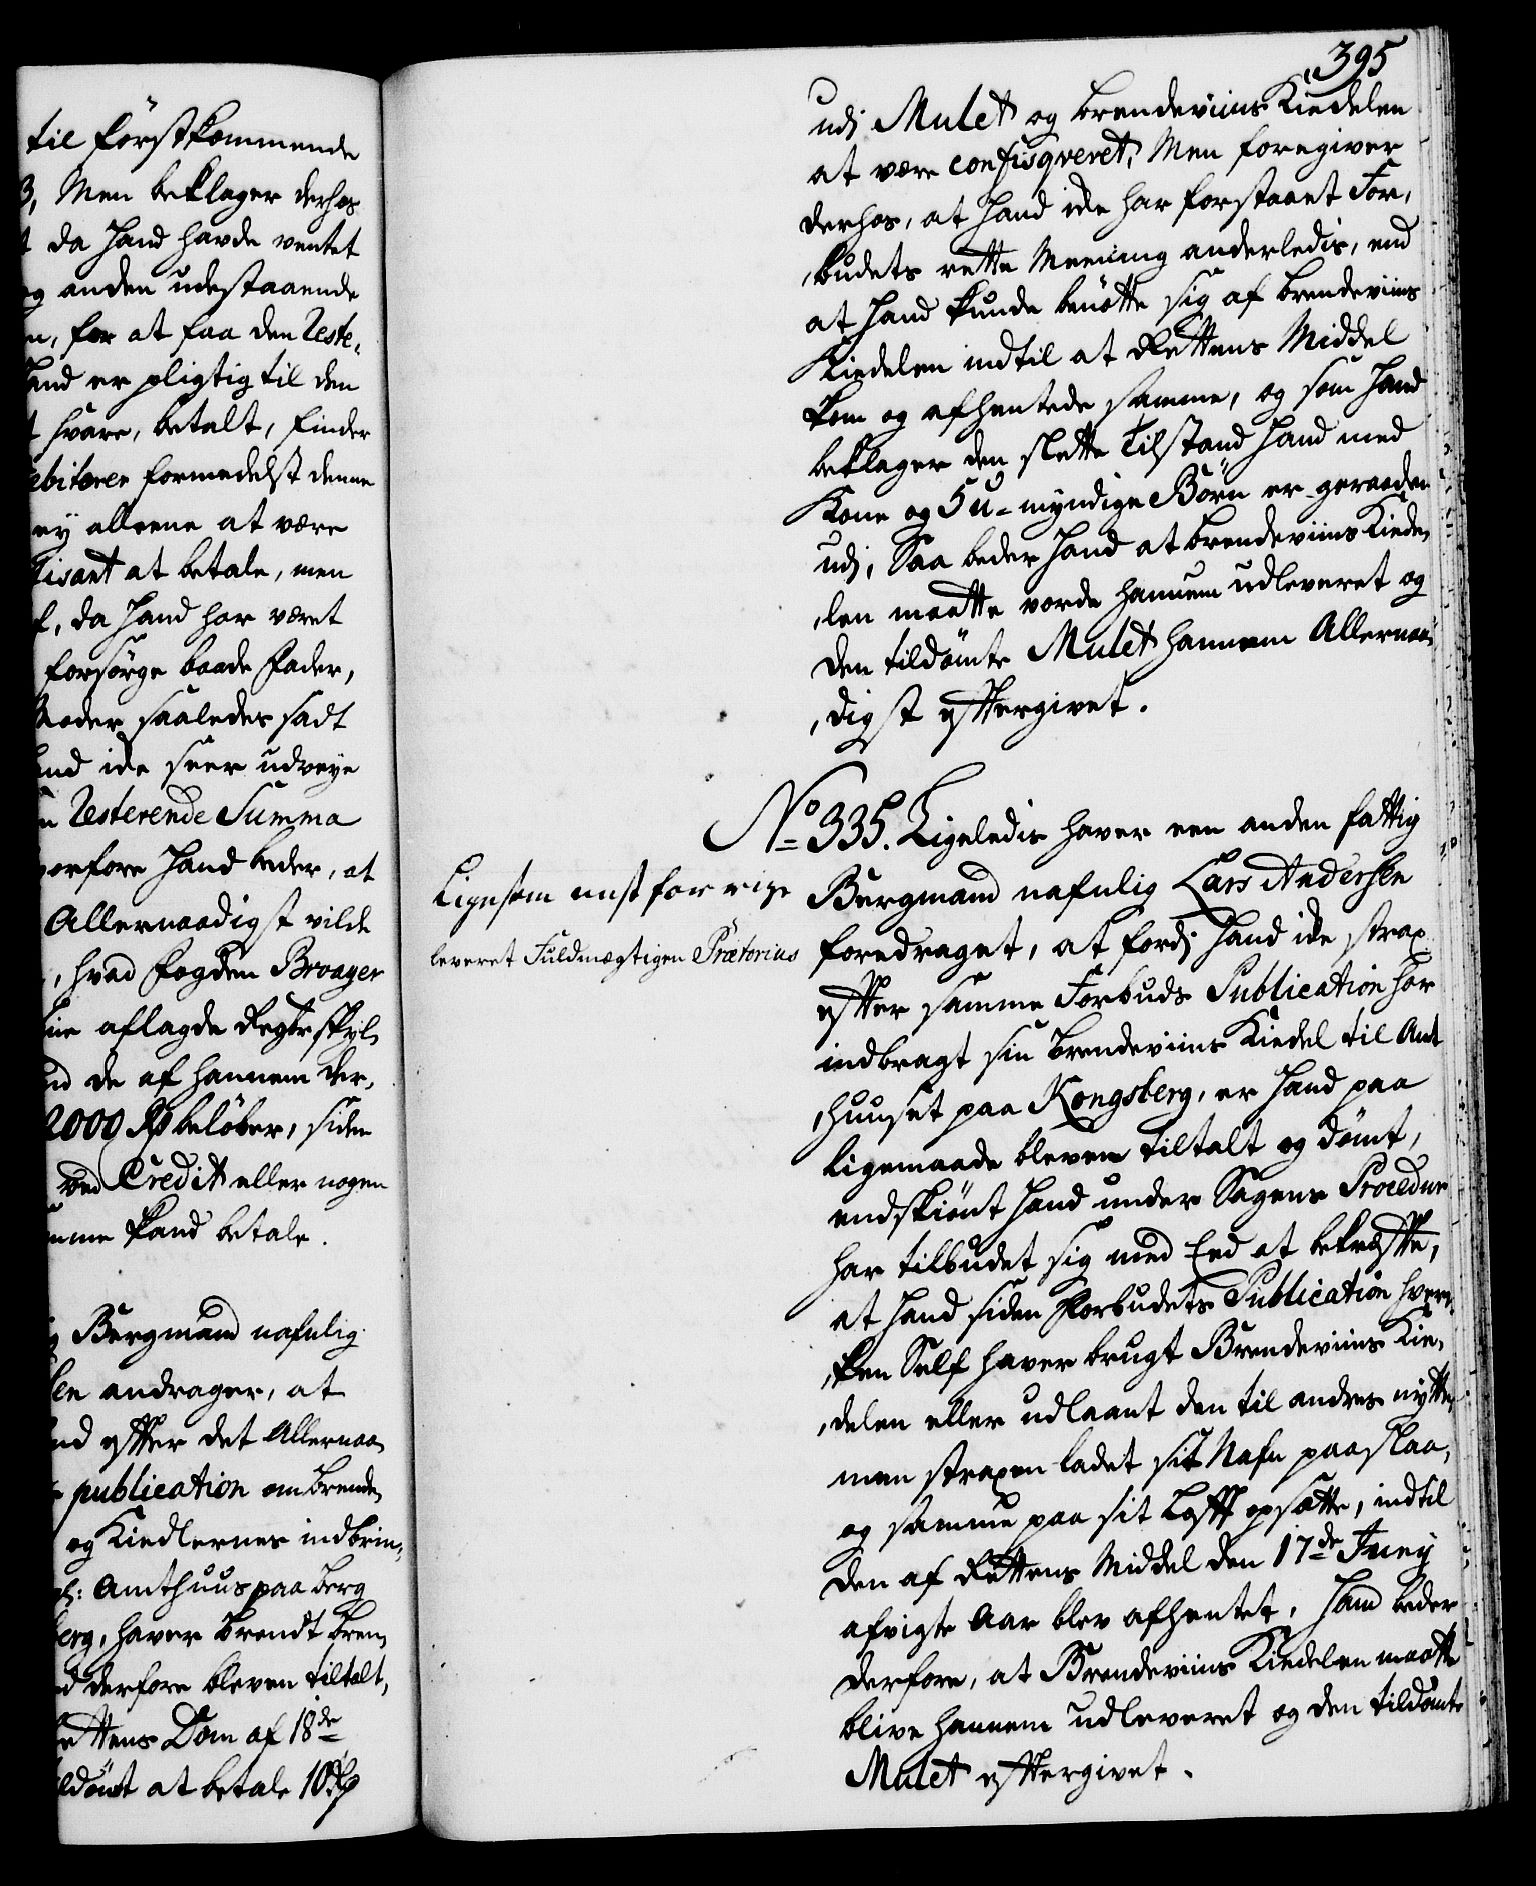 til förstkommende
3, Men beklager derhos
da Hand havde ventet
og anden udestaaende
n, for at faa den Reste,
Hand er pligtig til den
hvore, betalt, finder
ebitorer formedelst denne
ey alleene at være
tisant at betale, men
f, da Hand har været
forsörge baade Fader,
Moder saaledes sadt
and icke seer udveye
n Resterende Summa
orfore Hand beder, at
Allernaadigst vilde
, hvad Fogden Broager
ine aflagde Regnskb
nd de af hannem der,
2000 Rd beløber, siden
ved Credit eller nogen
mme kand betale.
g Bergmand nafnlig
sen andrager, at
nd efter det Allernaa,
publication om brende,
og Kiedlernes indbrin,
Amthuus paa Berg
berg, haver brendt bren,
d derfore bleven tiltalt,
ettens Dom af 18de
ldömt at betale 10 Rd
395
udj Mulct og brendeviins Kiedelen
at være confisqveret, Men foregiver
derhos, at Hand icke har forstaaet For,
,budets rette Meening anderledis, end
at Hand kunde benötte sig af brendeviins
Kiedelen indtil at Rettens Middel
kom og afhentede samme, og som Hand
beklager den slette Tilstand Hand med
Kone og 5 u-myndige Börn er geraaden
udj, Saa beder Hand at brendeviins Kiede,
,len maatte vorde hannem udleveret og
den tildömte Mulct hannem Allernaa,
,digst eftergivet.
No 335. Ligeledis haver een anden fattig
Bergmand nafnlig Lars Andersen
foredraget, at fordj Hand icke strax
efter samme Forbuds Publication har
indbragt sin brendeviins Kiedel til Amt
,huuset paa Kongsberg, er Hand paa
ligemaade bleven tiltalt og dömt,
endskiönt Hand under Sagens Procedur
har tilbudet sig med Eed at bekræfte,
at Hand siden Forbudets Publication hver,
,ken Self haver brugt Brendeviins Kie,
,delen eller udlaant den til andres nytte,
men straxen ladet sit Nafn paaslaa,
og samme paa sit Loft opsætte, indtil
den af Rettens Middel den 17de Junij
afvigte Aar blev afhentet, Hand beder
derfore, at Brendeviins Kiedelen maatte
blive hannem udleveret og den tildömte
Mulct eftergivet.
Ligesom nest forrige
leveret Fuldmægtigen Prætorius